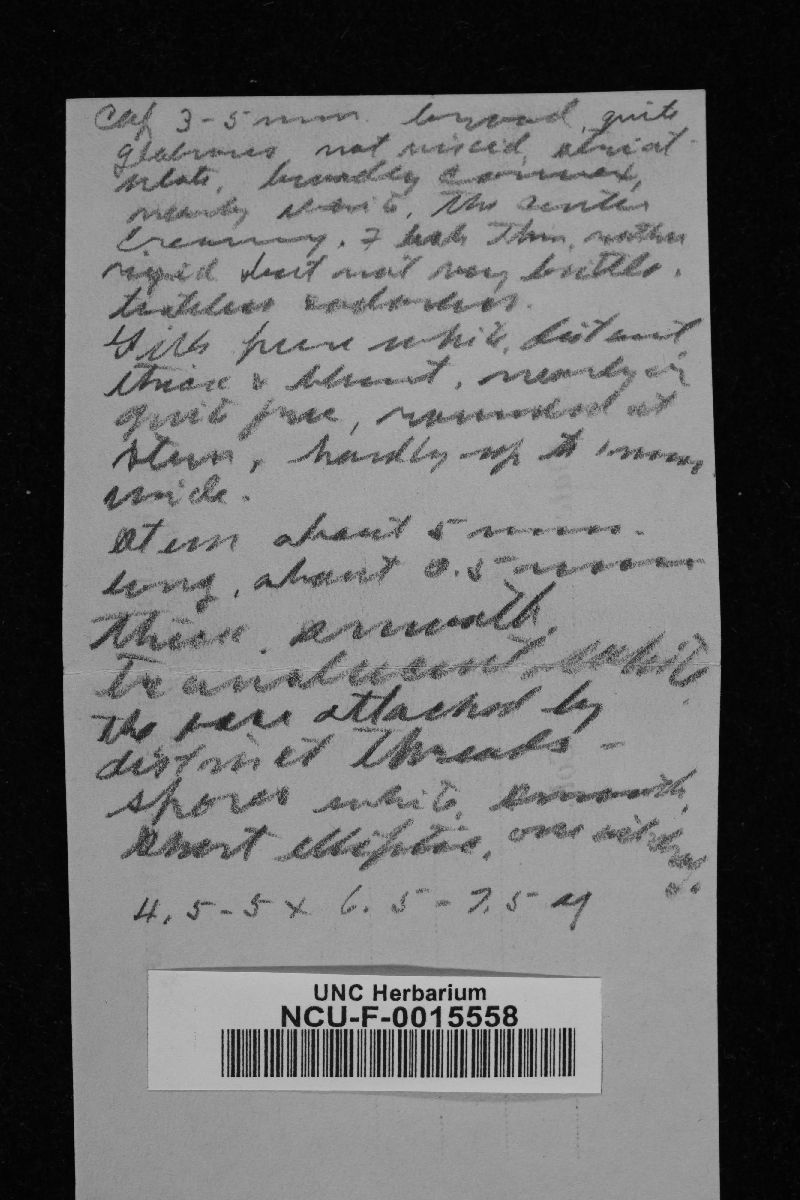 Cap 3-5 mm. broad, quite
glabrous not viscid, striat-
ulate, broadly convex,
nearly white, the center
creamy. Flesh thin, rather
rigid but not very brittle,
tasteless & odorless.
Gills pure white, distant
thick & blunt, nearly or
quite free, rounded at
stem, hardly up to 1 mm.
wide.
Stem about 5 mm.
long, about 0.5 mm
thick, smooth,
translucent white
the base attached by
distinct threads -
Spores white, smooth,
short elliptic, one
4.5-5 x 6.5-7.5
UNC Herbarium
NCU-F-0015558